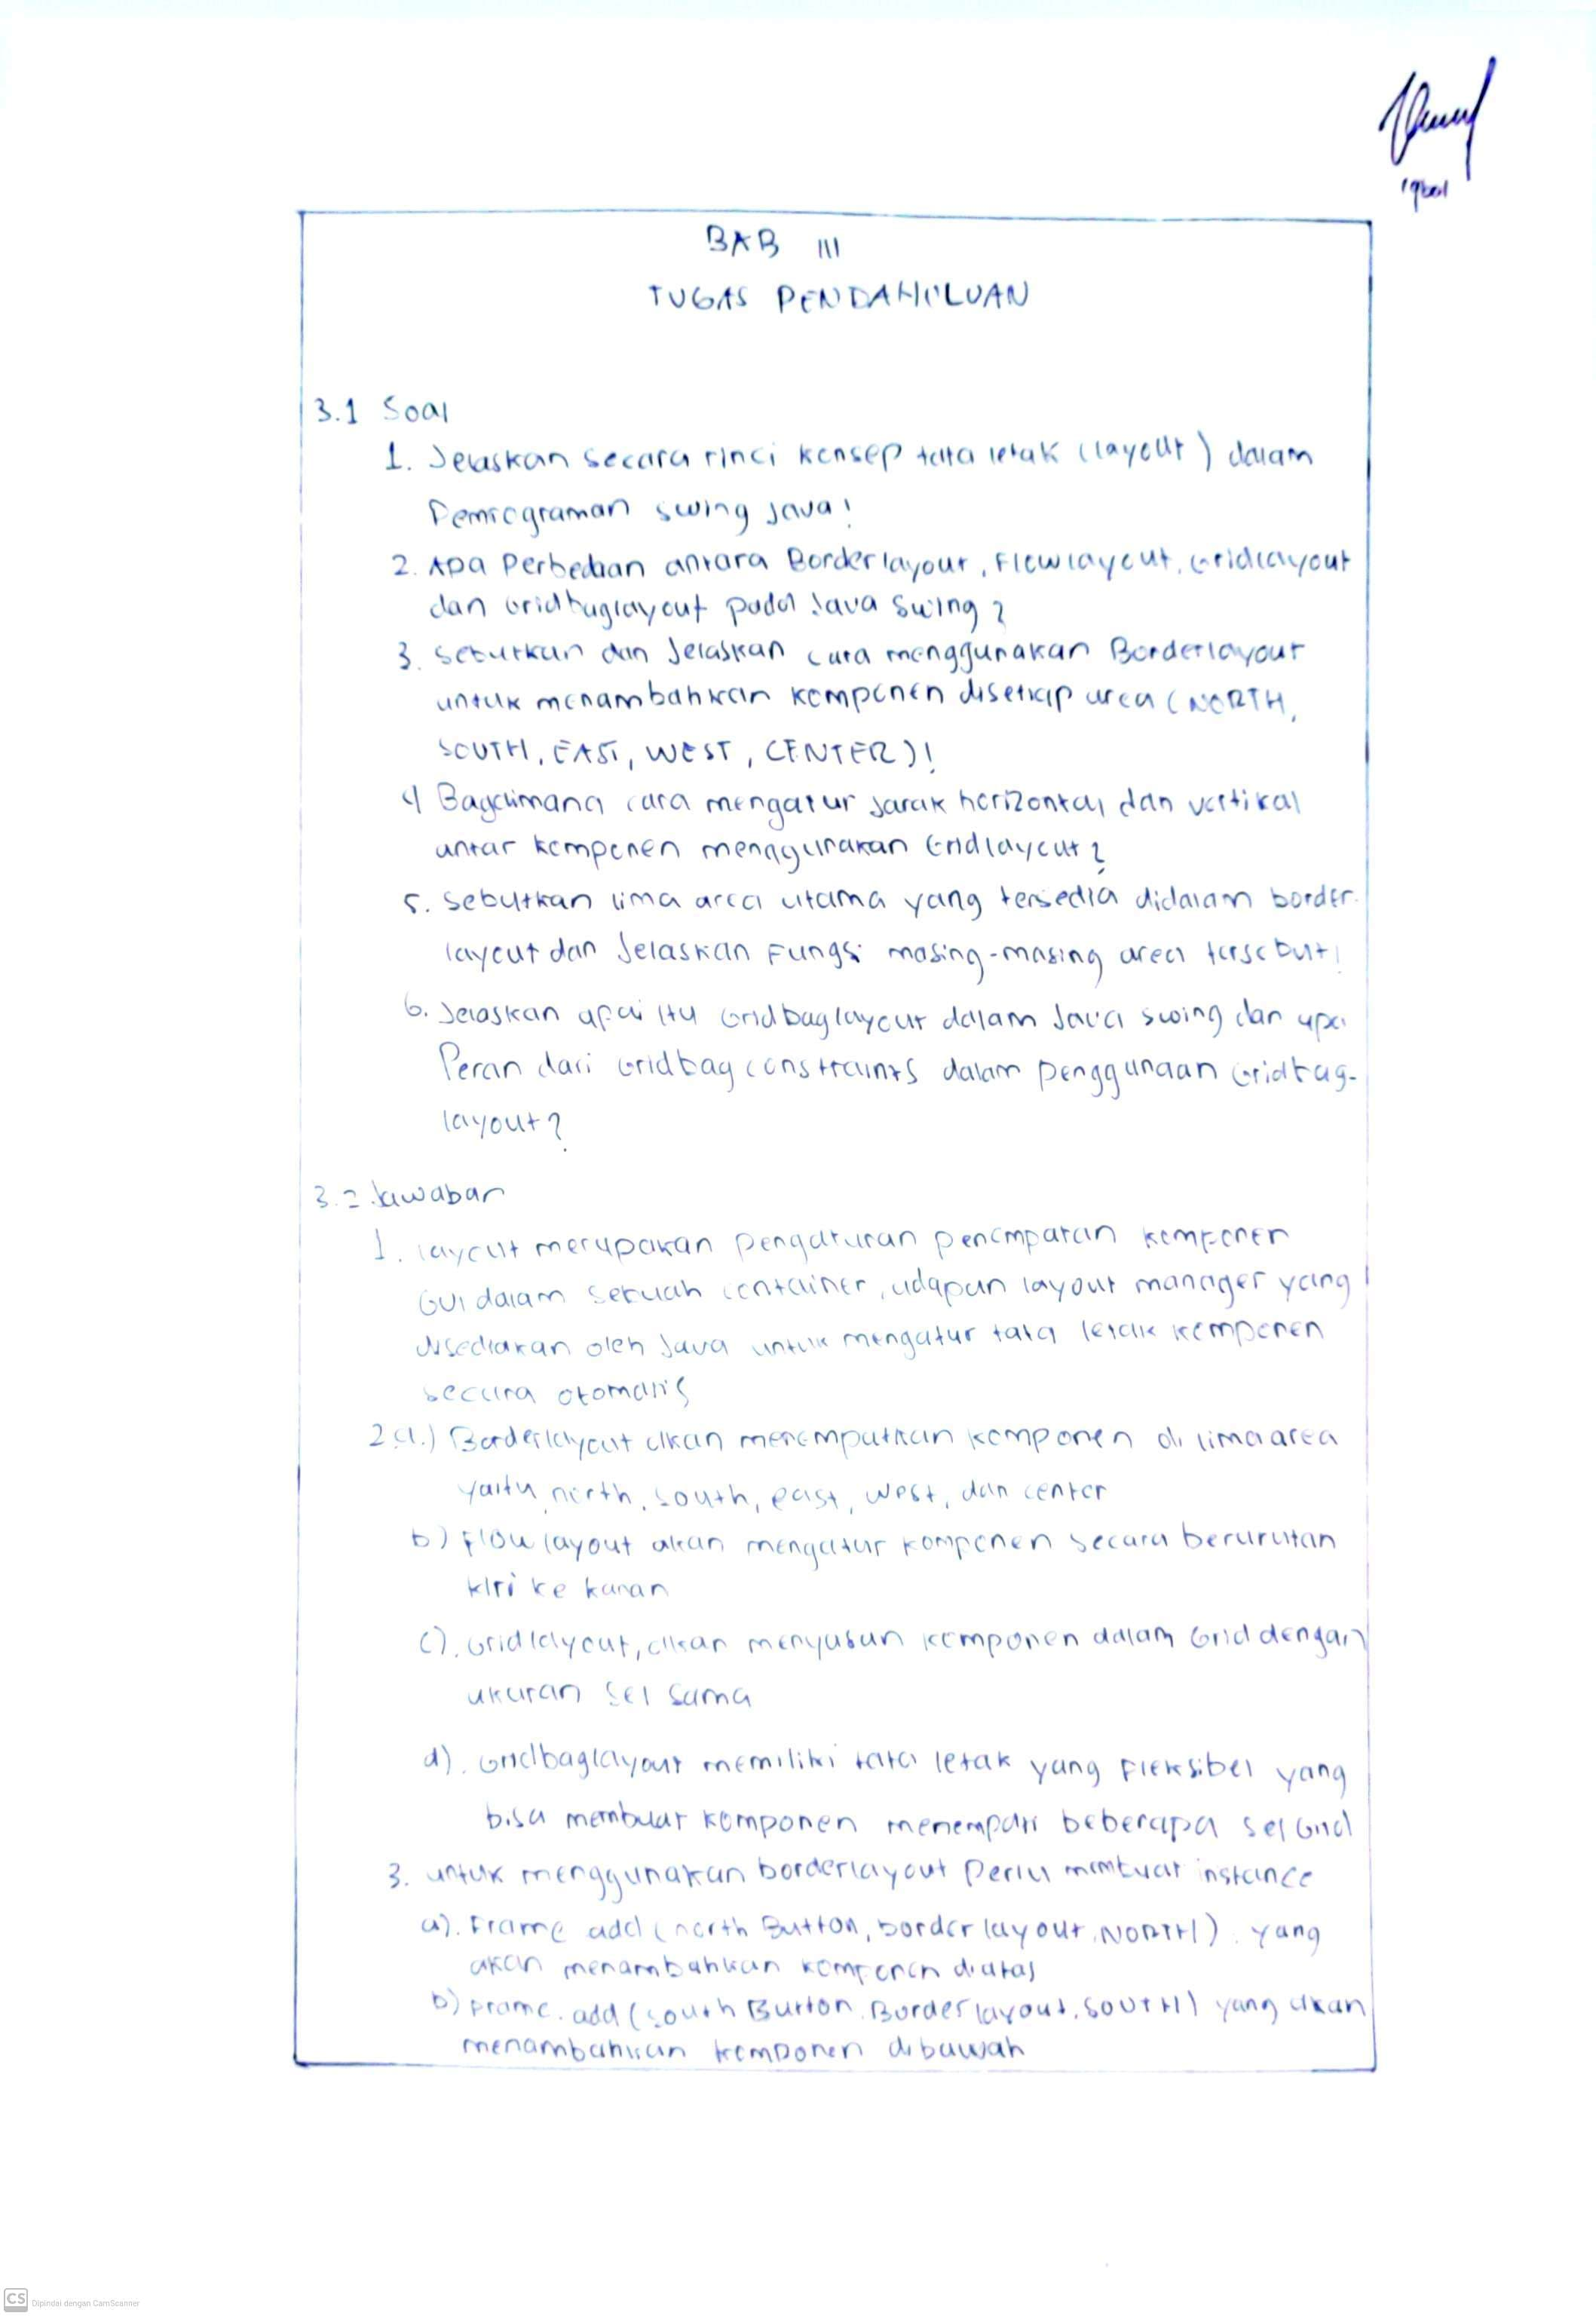 Iqbal
BAB III
TUGAS PENDAHULUAN
3.1 Soal
1. Jelaskan secara rinci konsep tata letak (layout) dalam
Pemrograman swing Java!
2. Apa Perbedaan antara Borderlayout, Flowlayout, Gridlayout
dan Gridbaglayout pada Java Swing?
3. Sebutkan dan Jelaskan cara menggunakan Borderlayout
untuk menambahkan komponen disetiap area (NORTH,
SOUTH, EAST, WEST, CENTER)!
4 Bagaimana cara mengatur jarak horizontal dan vertikal
antar komponen menggunakan Gridlayout?
5. Sebutkan lima area utama yang tersedia didalam border-
layout dan Jelaskan Fungsi masing-masing area tersebut!
6. Jelaskan apa itu Gridbaglayout dalam Java swing dan apa
Peran dari Gridbag constraints dalam penggunaan Gridbag-
layout?
3.2 Jawaban
1. layout merupakan pengaturan penempatan komponen
GUI dalam sebuah container, adapun layout manager yang
disediakan oleh Java untuk mengatur tata letak komponen
secara otomatis
2 a.) Borderlayout akan menempatkan komponen di lima area
yaitu north, south, east, west, dan center
b) Flow layout akan mengatur komponen secara berurutan
kiri ke kanan
c). Gridlayout, akan menyusun komponen dalam Grid dengan
ukuran sel sama
d). Gridbaglayout memiliki tata letak yang Fleksibel yang
bisa membuat komponen menempati beberapa sel Grid
3. untuk menggunakan borderlayout Perlu membuat instance
a). Frame add (north Button, border layout. NORTH). yang
akan menambahkan komponen diatas
b) Frame. add (south Button. Border layout. SOUTH) yang akan
menambahkan komponen dibawah
CS Dipindai dengan CamScanner